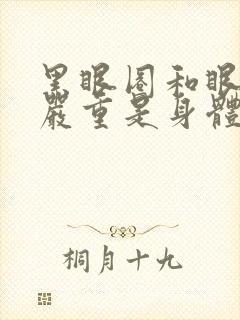 黑眼圈和眼
嚴重是身體
桐月十九